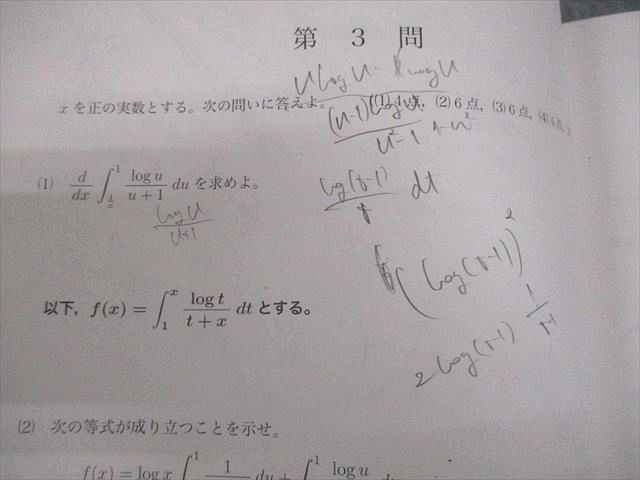 第 3 問
u log u -
x を正の実数とする。次の問いに答えよ。 ((1) 4点, (2) 6点, (3) 6点, (4) 4点,
(u-1) log u
u²-1 1-u²
(1) d/dx ∫_{1/x}^{1} log u/(u+1) du を求めよ。
log u/(u+1)
log(t-1)/t dt
(log(t-1))²
以下, f(x) = ∫_{1}^{x} log t/(t+x) dt とする。
2 log(t-1) 1/(t-1)
(2) 次の等式が成り立つことを示せ。
f(x) = log x ∫^{1} 1 du + ∫^{1} log u du